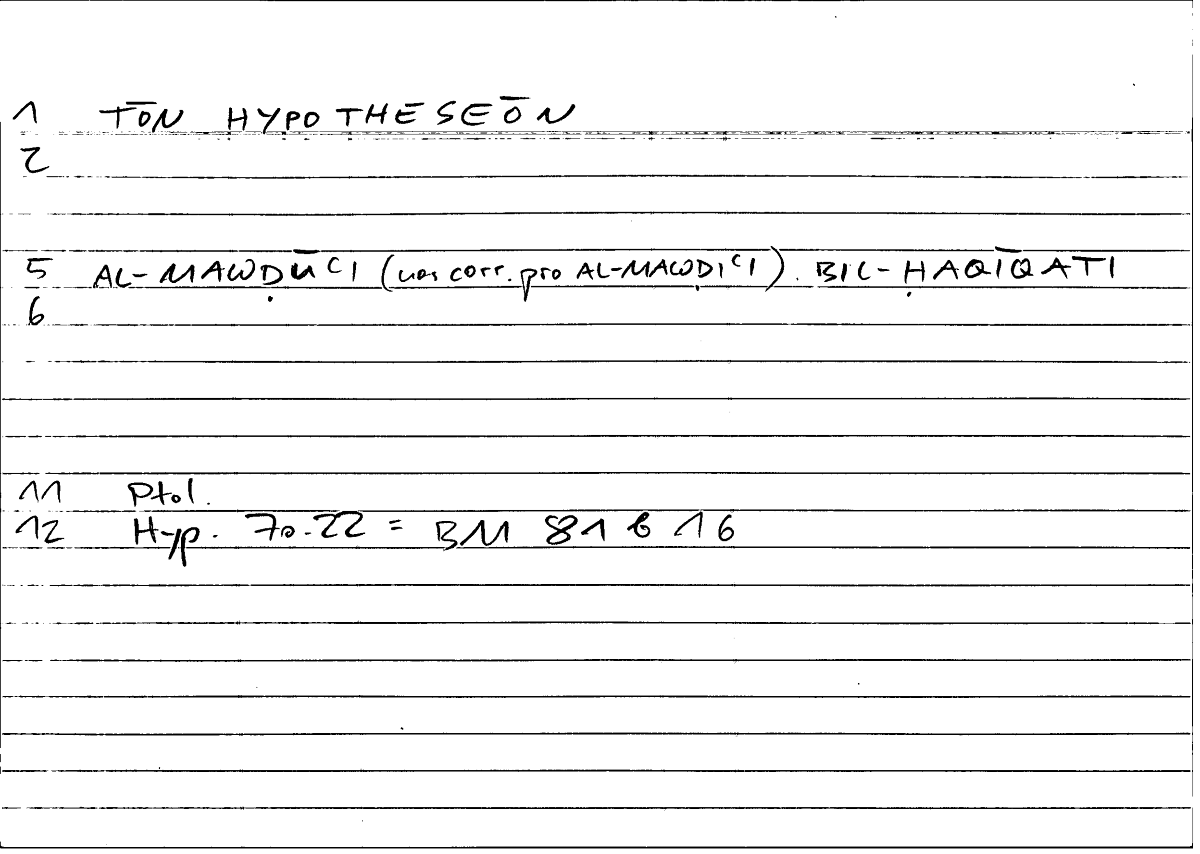 1 TŌN HYPOTHESEŌN
2
5 AL-MAWḌŪʿI (nos corr. pro AL-MAWḌIʿI). BIL-ḤAQĪQATI
6
11 Ptol.
12 Hyp. 70.22 = BM 81 b 16